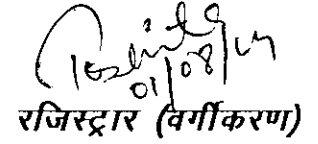 01/08/19
रजिस्ट्रार (वर्गीकरण)